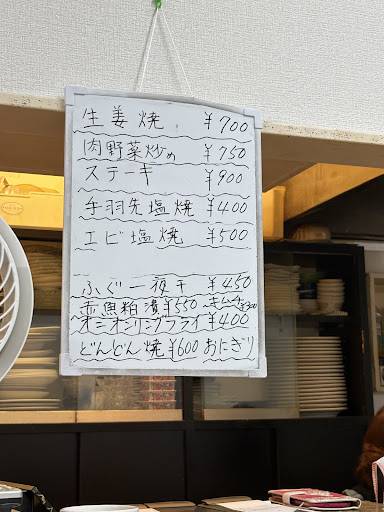 生姜焼 ¥700
肉野菜炒め ¥750
ステーキ ¥900
手羽先塩焼 ¥400
エビ塩焼 ¥500
ふぐ一夜干 ¥450
赤魚粕漬¥550
オニオンリングフライ¥400
どんどん焼¥600おにぎり